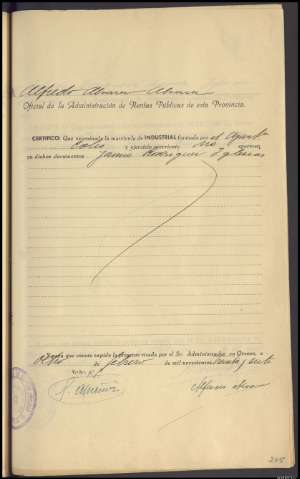 Alfredo Alvarez
Oficial de la Administración de Rentas Públicas de esta Provincia.
CERTIFICO: Que examinada la matrícula de INDUSTRIAL formada por el Ayunt.
Coles y ejercicio corriente, No aparece
en dichos documentos Jaime Rodriguez Iglesias
Y para que conste expido la presente visada por el Sr. Administrador en Orense, a
de febrero de mil novecientos treinta y siete
V.º B.º
245